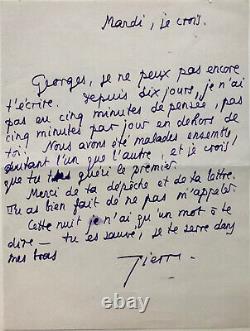 Mardi, je crois.
Georges, je ne peux pas encore
t'écrire. Depuis dix jours, je n'ai
pas eu cinq minutes de pensée, pas
cinq minutes par jour en dehors de
toi. Nous avons été malades ensemble,
autant l'un que l'autre, et je crois
que tu as guéri le premier.
Merci de ta dépêche et de ta lettre.
Tu as bien fait de ne pas m'appeler.
Cette nuit je n'ai qu'un mot à te
dire — tu es sauvé, je te serre dans
mes bras
Pierre.
© hitparades.com